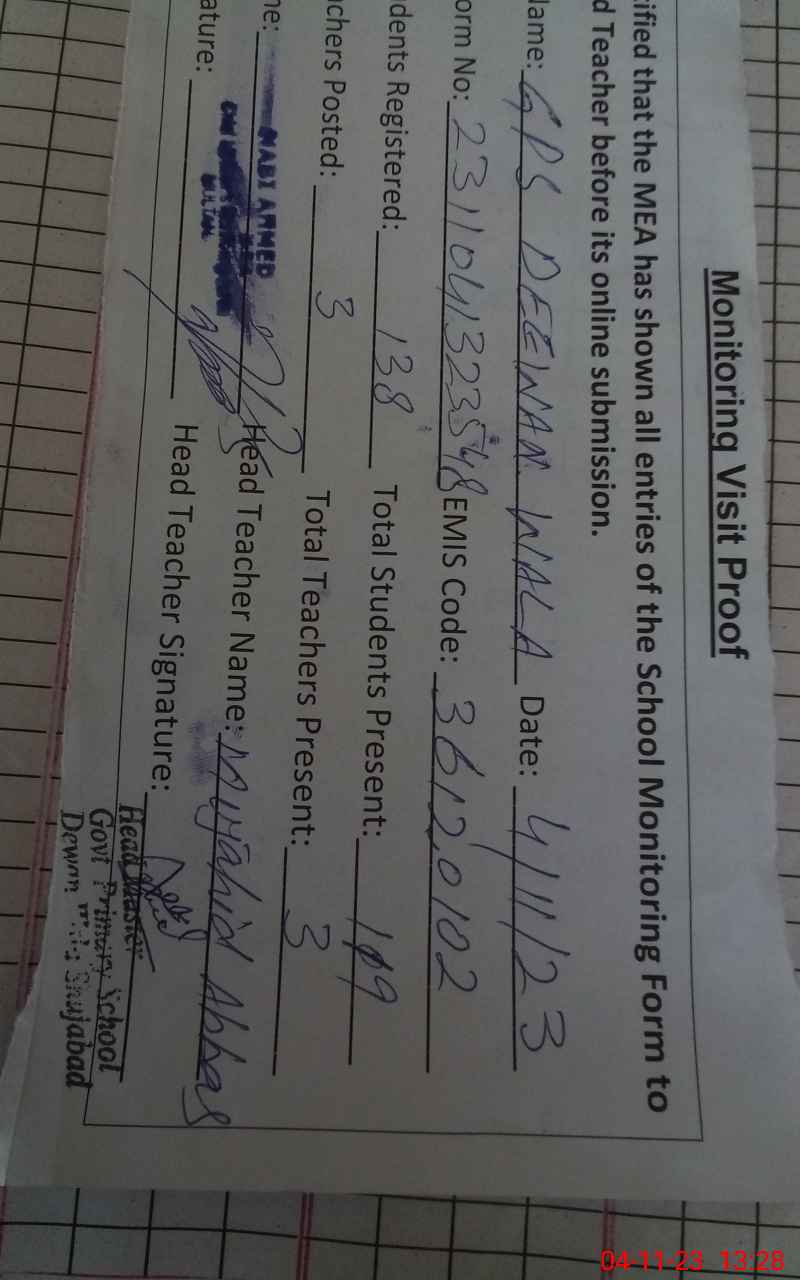 Monitoring Visit Proof
ified that the MEA has shown all entries of the School Monitoring Form to
d Teacher before its online submission.
lame: GPS DEEWAN WALA Date: 4/11/23
orm No: 2311041323548 EMIS Code: 36120102
dents Registered: 138 Total Students Present: 109
chers Posted: 3 Total Teachers Present: 3
ne: NABI AHMED Head Teacher Name: Mujahid Abbas
MULTAN
ature: Head Teacher Signature:
Head Master
Govt Primary School
Dewan Shujabad
04-11-23 13:28